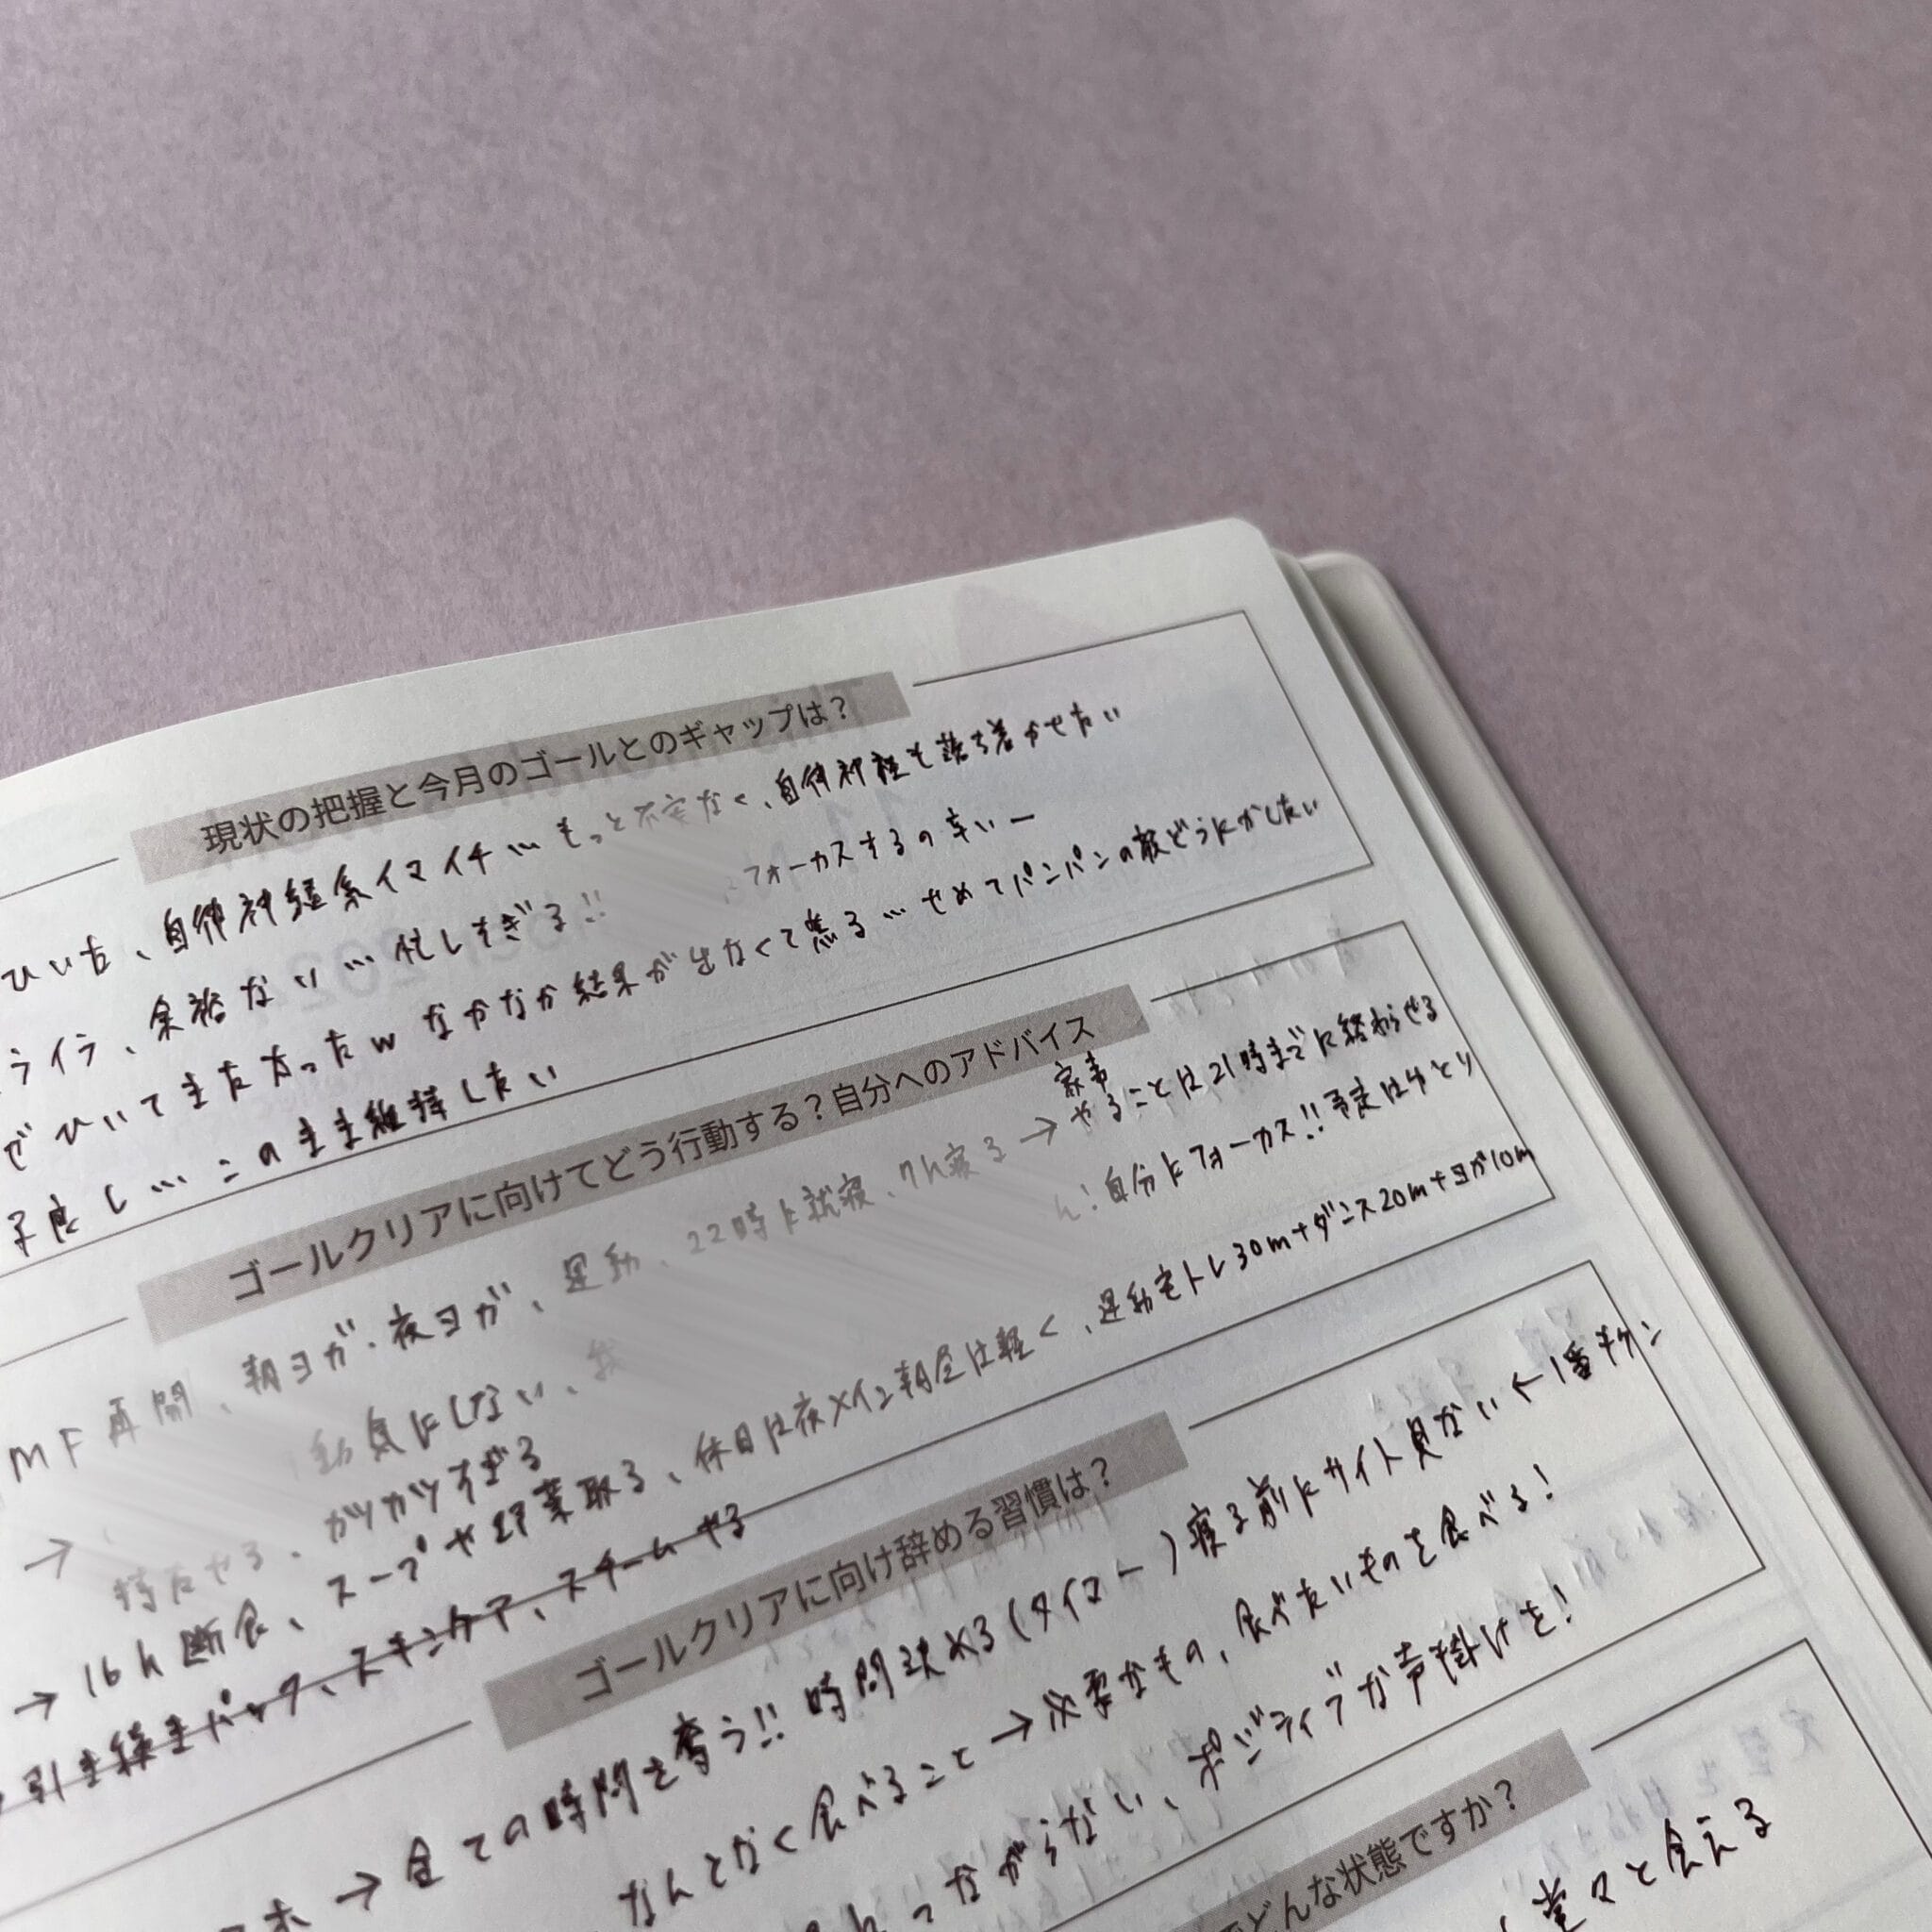 現状の把握と今月のゴールとのギャップは?
ひいた、自律神経系イマイチ… もっと不安なく、自律神経も落ち着かせたい
ライラ、余裕ない… 忙しすぎる!! フォーカスするの辛いー
ぜひいてまた太ったw なかなか結果が出なくて焦る… せめてパンパンの 
子良し… このまま維持したい
ゴールクリアに向けてどう行動する?自分へのアドバイス
MF再開、朝ヨガ・夜ヨガ、運動、22時に就寝、7h寝る→
家事
やることは21時までに終わらせる
→ 動気にしない、 ! 自分にフォーカス!! 予定はゆとり
持たせる、ガツガツすぎる
→16h断食、スープや野菜取る、休日は夜メイン朝昼は軽く、運動宅トレ30m+ダンス20m+ヨガ10m
引き続きパック、スキンケア、スチームやる
ゴールクリアに向け辞める習慣は?
→全ての時間を奪う!! 時間決める(タイマー)寝る前にサイト見ない←1番キケン
なんとなく食べること→必要なもの、食べたいものを食べる!
つながらない、ポジティブな声掛けを!
どんな状態ですか?
堂々と会える